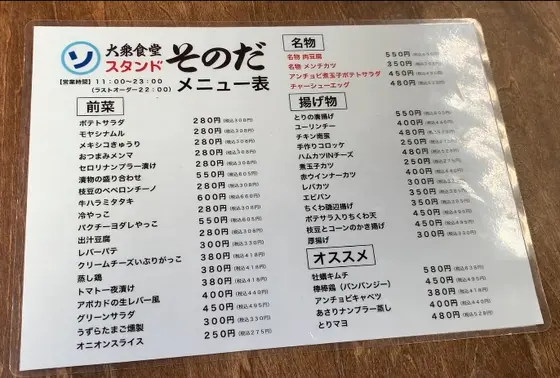 大衆食堂
スタンド
そのだ
【営業時間】11:00〜23:00
(ラストオーダー22:00)
メニュー表
前菜
ポテトサラダ 280円(税込308円)
モヤシナムル 280円(税込308円)
メキシコきゅうり 280円(税込308円)
おつまみメンマ 280円(税込308円)
セロリナンプラー漬け 280円(税込308円)
漬物の盛り合わせ 550円(税込605円)
枝豆のペペロンチーノ 280円(税込308円)
牛ハラミタタキ 600円(税込660円)
冷やっこ 280円(税込308円)
パクチーヨダレやっこ 550円(税込605円)
出汁豆腐 280円(税込308円)
レバーパテ 300円(税込330円)
クリームチーズいぶりがっこ 380円(税込418円)
蒸し鶏 380円(税込418円)
トマト一夜漬け 380円(税込418円)
アボカドの生レバー風 400円(税込440円)
グリーンサラダ 450円(税込495円)
うずらたまご燻製 300円(税込330円)
オニオンスライス 250円(税込275円)
名物
名物 肉豆腐 550円
名物 メンチカツ 350円
アンチョビ煮玉子ポテトサラダ 450円
チャーシューエッグ 480円
揚げ物
とりの唐揚げ 550円
ユーリンチー 400円
チキン南蛮 480円
手作りコロッケ 250円
ハムカツINチーズ 480円
煮玉子カツ 250円
赤ウインナーカツ 400円
レバカツ 300円
エビパン 350円
ちくわ磯辺揚げ 300円
ポテサラ入りちくわ天 450円
枝豆とコーンのかき揚げ 450円
厚揚げ 300円
オススメ
牡蠣キムチ 580円
棒棒鶏(バンバンジー) 450円
アンチョビキャベツ 380円
あさりナンプラー蒸し 400円
とりマヨ 480円(税込528円)